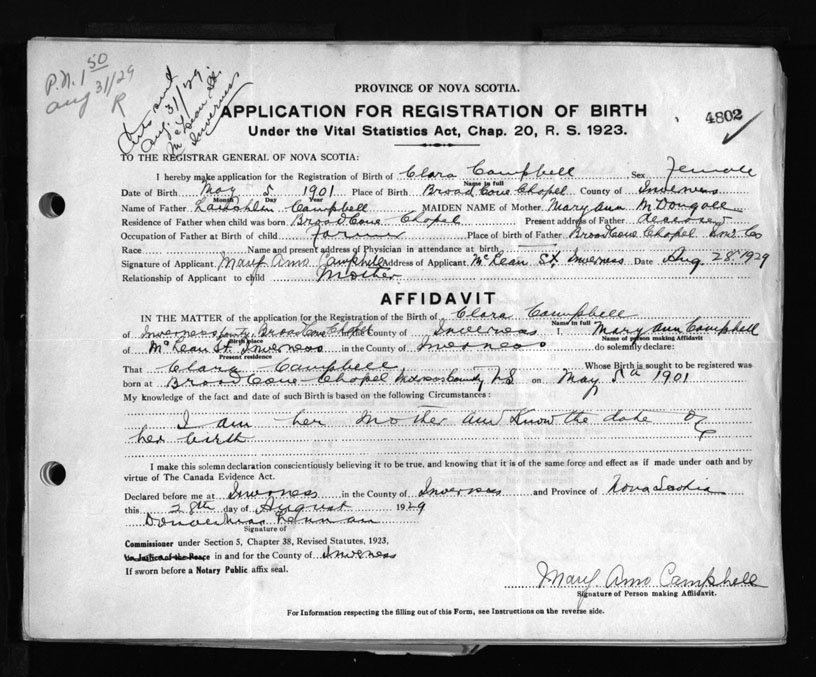 P.N. 1 50
Aug 31/29
R
Aug 31/29
McLean St.
Inverness
PROVINCE OF NOVA SCOTIA.
APPLICATION FOR REGISTRATION OF BIRTH
4802
Under the Vital Statistics Act, Chap. 20, R. S. 1923.
TO THE REGISTRAR GENERAL OF NOVA SCOTIA:
I hereby make application for the Registration of Birth of Clara Campbell Sex Female
Name in full
Date of Birth May 5 1901 Place of Birth Broad Cove Chapel County of Inverness
Month Day Year
Name of Father Lauchlin Campbell MAIDEN NAME of Mother Mary Ann McDougall
Residence of Father when child was born Broad Cove Chapel Present address of Father deceased
Occupation of Father at Birth of child farmer Place of birth of Father Broad Cove Chapel Inv. Co
Race Name and present address of Physician in attendance at birth
Signature of Applicant Mary Ann Campbell Address of Applicant McLean St, Inverness Date Aug 28th 1929
Relationship of Applicant to child Mother
AFFIDAVIT
IN THE MATTER of the application for the Registration of the Birth of Clara Campbell
Name in full
of Inverness County Broad Cove Chapel in the County of Inverness I, Mary Ann Campbell
Birth place Name of person making Affidavit
of McLean St. Inverness in the County of Inverness do solemnly declare:
Present residence
That Clara Campbell Whose Birth is sought to be registered was
born at Broad Cove Chapel Inverness County N S on May 5th 1901
My knowledge of the fact and date of such Birth is based on the following Circumstances:
I am her Mother and Know the date of
her birth
I make this solemn declaration conscientiously believing it to be true, and knowing that it is of the same force and effect as if made under oath and by
virtue of The Canada Evidence Act.
Declared before me at Inverness in the County of Inverness and Province of Nova Scotia
this 28th day of August 1929
Signature of
Commissioner under Section 5, Chapter 38, Revised Statutes, 1923,
or Justice of the Peace in and for the County of Inverness
If sworn before a Notary Public affix seal.
Mary Ann Campbell
Signature of Person making Affidavit.
For Information respecting the filling out of this Form, see Instructions on the reverse side.